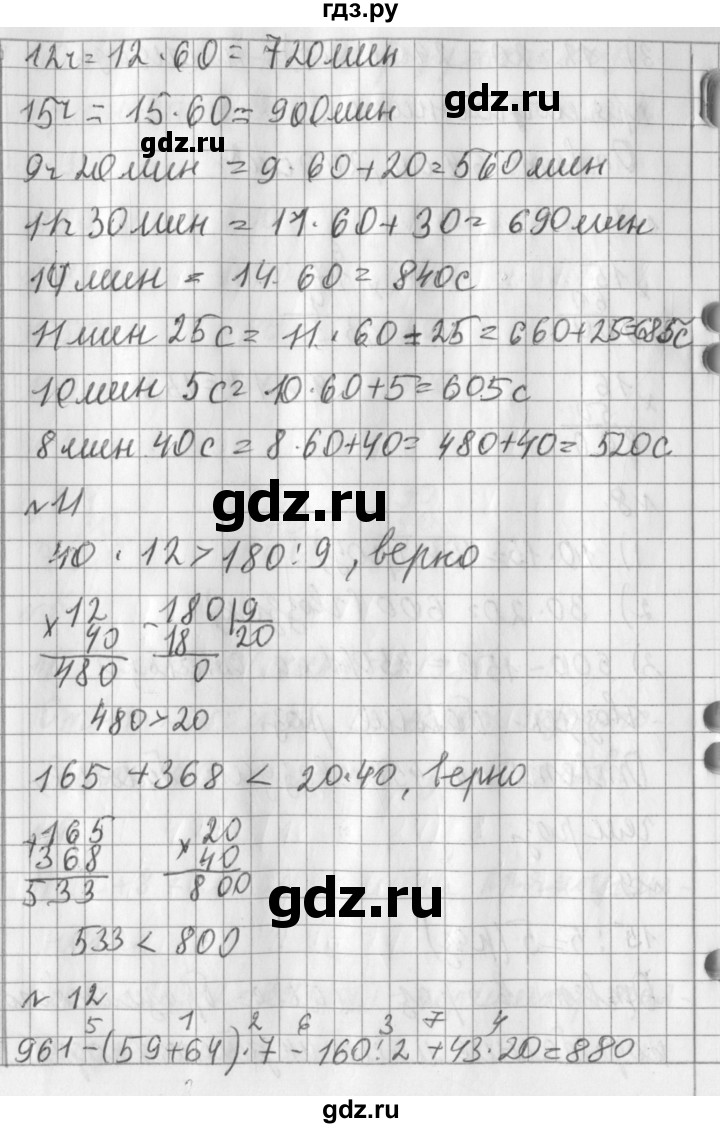 гдз.ру
12ч = 12 · 60 = 720 мин
gdz.ru
15ч = 15 · 60 = 900 мин
gdz.ru
9ч 20 мин = 9 · 60 + 20 = 560 мин
11ч 30 мин = 11 · 60 + 30 = 690 мин
14 мин = 14 · 60 = 840 с
11 мин 25 с = 11 · 60 + 25 = 660 + 25 = 685 с
10 мин 5 с = 10 · 60 + 5 = 605 с
8 мин 40 с = 8 · 60 + 40 = 480 + 40 = 520 с
gdz.ru
№ 11
40 · 12 > 180 : 9, верно
× 12 - 180 | 9
40 18 20
480 0
480 > 20
165 + 368 < 20 · 40, верно
+ 165 × 20
368 40
533 800
gdz.ru
533 < 800
№ 12
5 1 2 6 3 7 4
961 - (59 + 64) · 7 - 160 : 2 + 43 · 20 = 880
gdz.ru